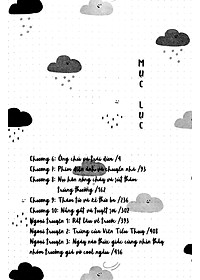 MỤC LỤC
Chương 6: Ông chú và trái tim /4
Chương 7: Phim điện ảnh và chuyện nhà /93
Chương 8: Nụ hôn nồng cháy và sát thần
trùng thương /162
Chương 9: Thám tử và kẻ thứ ba /236
Chương 10: Nắng gắt và tuyết rơi /302
Ngoại truyện 1: Rất lâu về trước /393
Ngoại truyện 2: Trứng của Viên Tiểu Thụy /408
Ngoại truyện 3: Ngày nào thức giấc cũng nhìn thấy
nhóm trưởng giả vờ cool ngầu /416